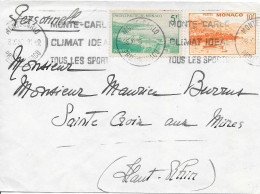 Personnelle
MONTE-CARLO MONTE-CARLO
CLIMAT IDEAL CLIMAT IDEAL
TOUS LES SPORTS TOUS LES SPORTS
MONACO
Monsieur
Monsieur Maurice Burrus
Sainte Croix aux Mines
(Haut-Rhin)